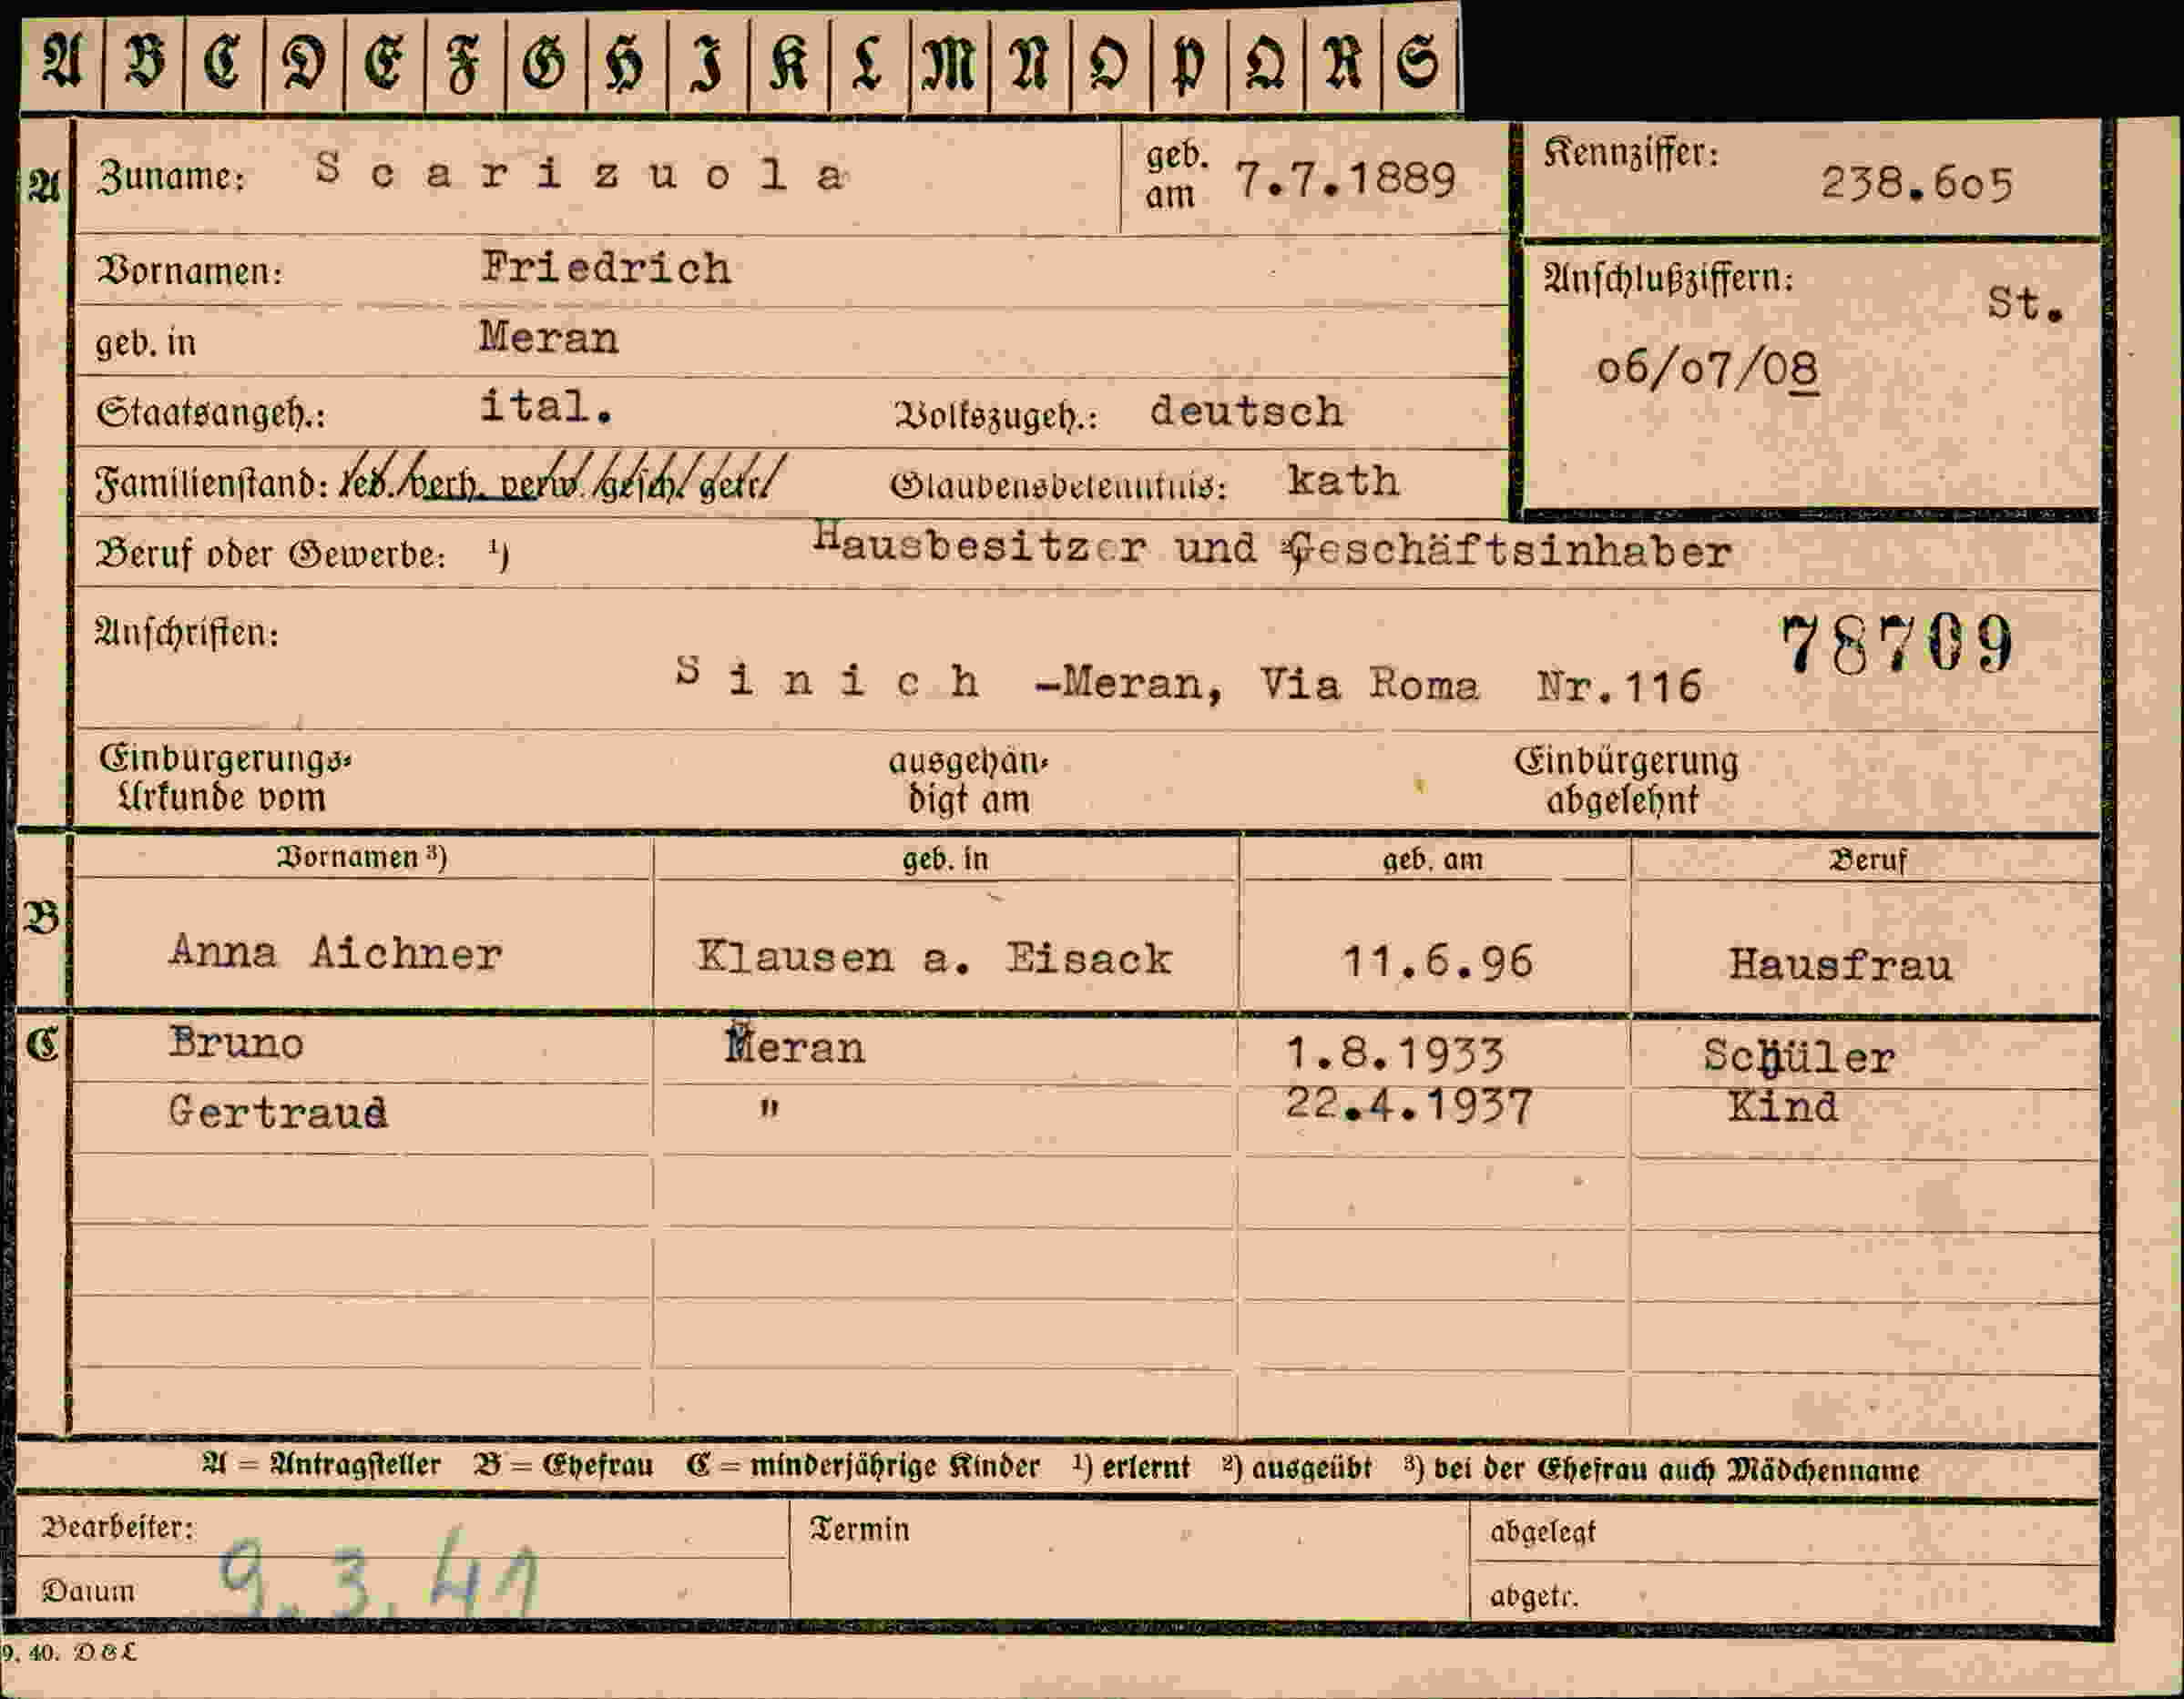 A B C D E F G H I K L M N O P Q R S
A Zuname: Scarizuola geb. am 7.7.1889 Kennziffer: 238.605
Vornamen: Friedrich
Anschlußziffern: St.
geb. in Meran
06/07/08
Staatsangeh.: ital. Volkszugeh.: deutsch
Familienstand: led./verh. verw./gesch/getr/ Glaubensbekenntnis: kath
Beruf oder Gewerbe: ¹) Hausbesitzer und ²) Geschäftsinhaber
Anschriften: 78709
Sinich -Meran, Via Roma Nr.116
Einbürgerungs- ausgehän- Einbürgerung
Urkunde vom digt am abgelehnt
Vornamen ³) geb. in geb. am Beruf
B Anna Aichner Klausen a. Eisack 11.6.96 Hausfrau
C Bruno Meran 1.8.1933 Schüler
Gertraud " 22.4.1937 Kind
A = Antragsteller B = Ehefrau C = minderjährige Kinder ¹) erlernt ²) ausgeübt ³) bei der Ehefrau auch Mädchenname
Bearbeiter: Termin abgelegt
Datum 9.3.41 abgetr.
9. 40. D&L